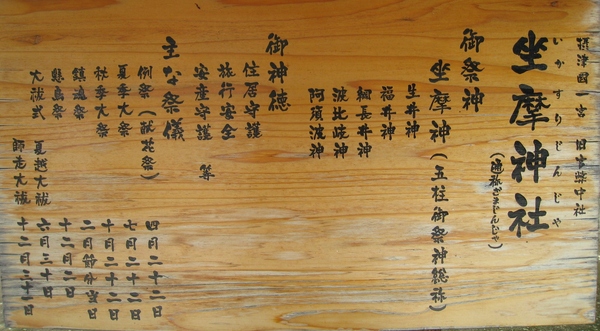 摂津國一宮 旧官幣中社
いかすりじんじゃ
坐摩神社
(通称ざまじんじゃ)
御祭神
坐摩神(五柱御祭神総称)
生井神
福井神
綱長井神
波比岐神
阿須波神
御神徳
住居守護
旅行安全
安産守護 等
主な祭儀
例祭(献花祭) 四月二十二日
夏季大祭 七月二十二日
秋季大祭 十月二十二日
鎮魂祭 二月節分当日
懸鳥祭 十二月二日
大祓式 夏越大祓 六月三十日
師走大祓 十二月三十一日